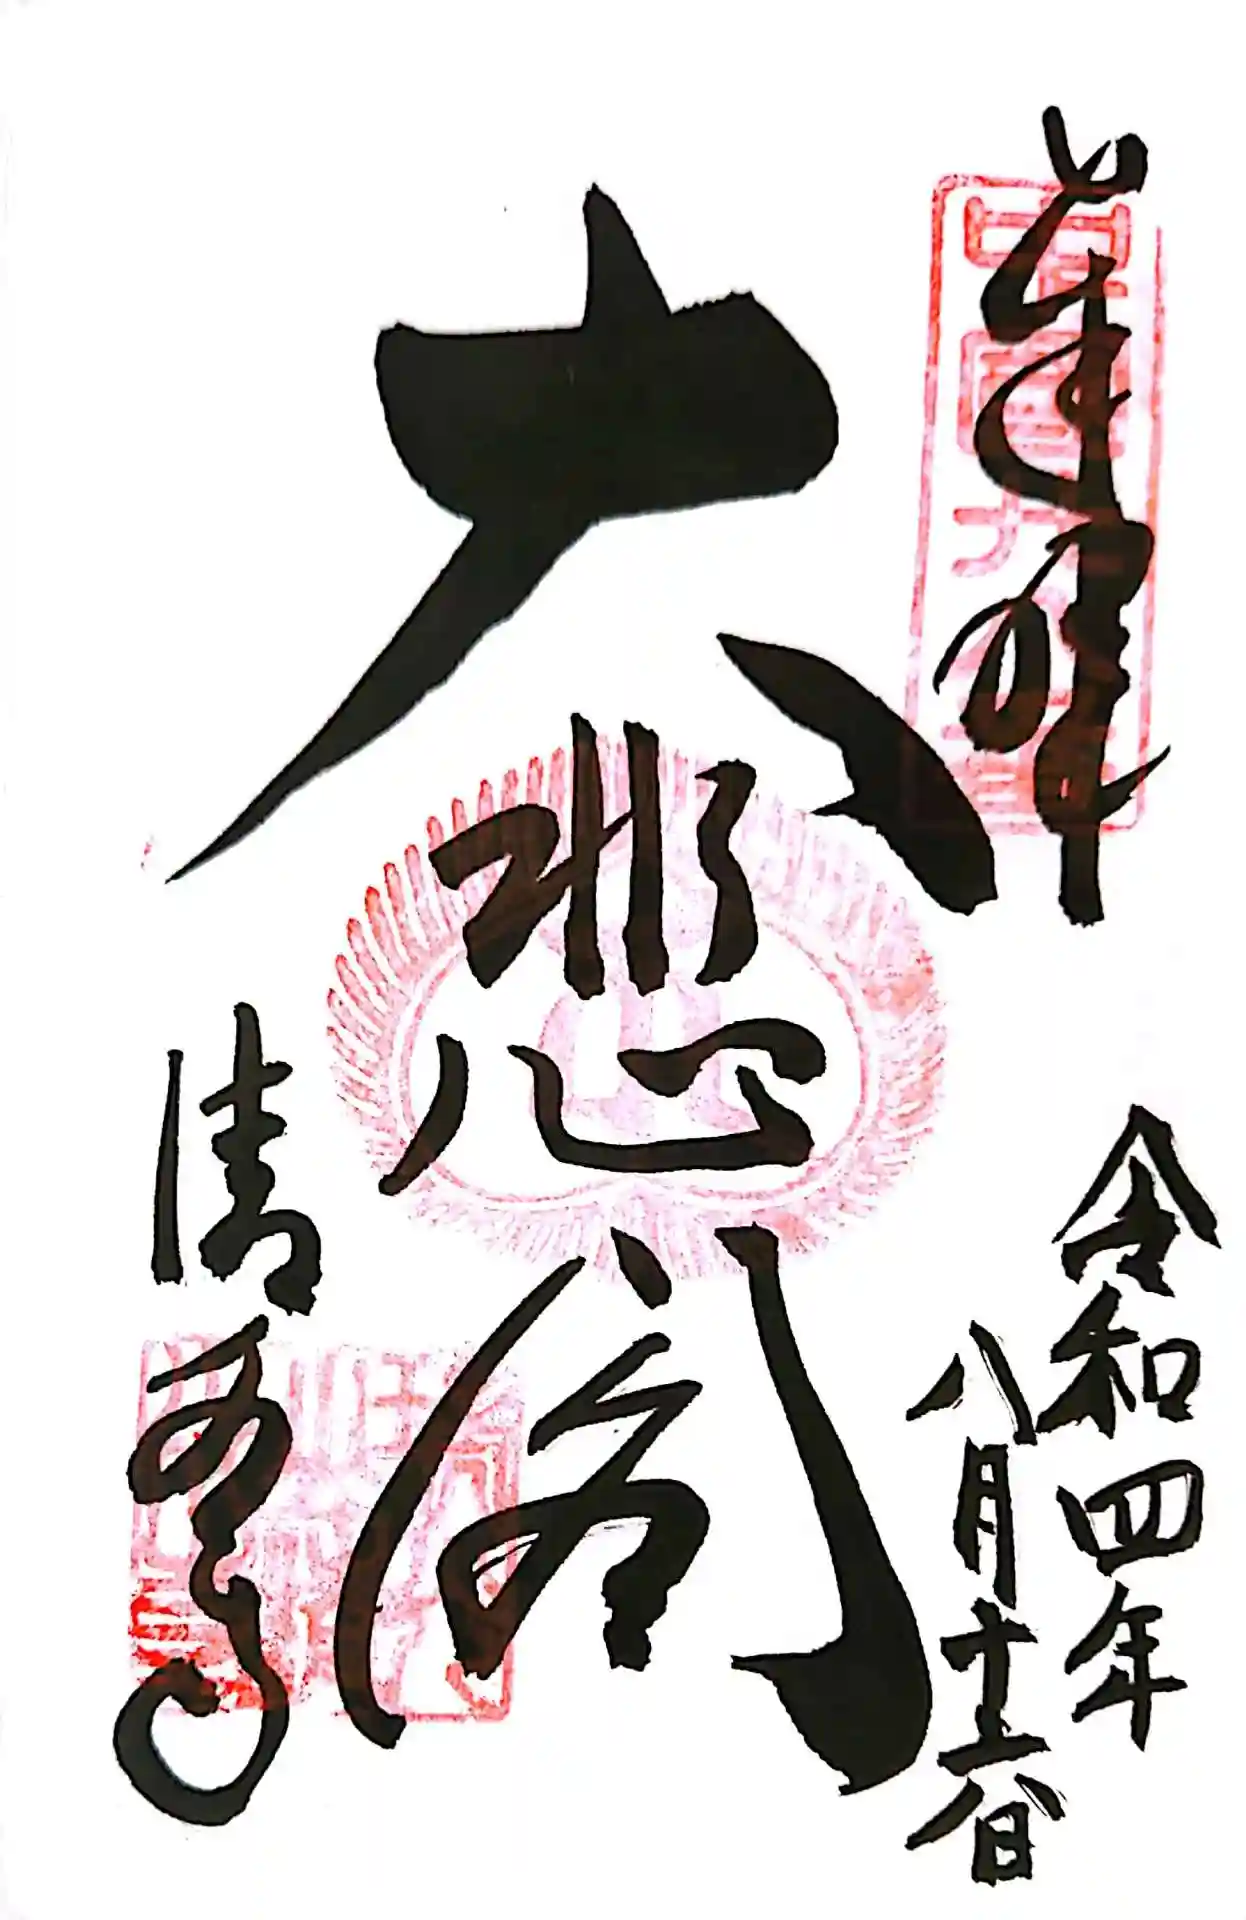 奉拝
大悲閣
清水寺
令和四年
八月十六日